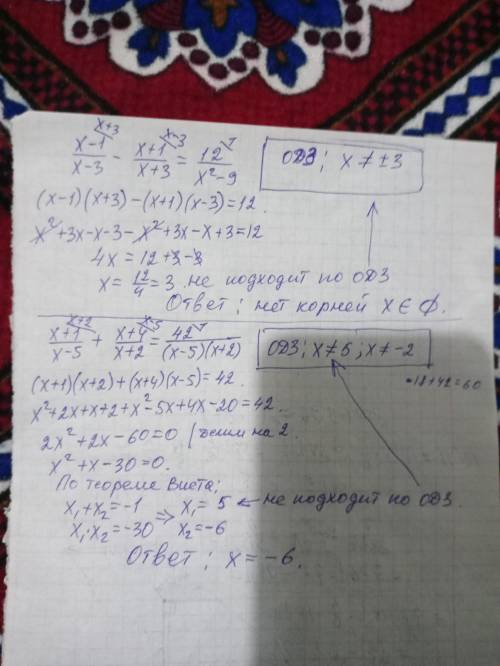 x+3 x-3
x-1/x-3 - x+1/x+3 = 12/x²-9 ОДЗ; x ≠ ±3
(x-1)(x+3)-(x+1)(x-3)=12.
x²+3x-x-3-x²+3x-x+3=12
4x = 12+3-3
x = 12/4 = 3. не подходит по ОДЗ
Ответ: нет корней x ∈ ϕ.
x+2 x-5
x+1/x-5 + x+4/x+2 = 42/(x-5)(x+2) ОДЗ; x≠5; x≠-2
-18+42=60
(x+1)(x+2)+(x+4)(x-5)=42.
x²+2x+x+2+x²-5x+4x-20=42.
2x²+2x-60=0 /делим на 2.
x²+x-30=0.
По теореме Виета;
x₁+x₂=-1 ⇒ x₁=5 ← не подходит по ОДЗ.
x₁·x₂=-30 x₂=-6
Ответ: x=-6.